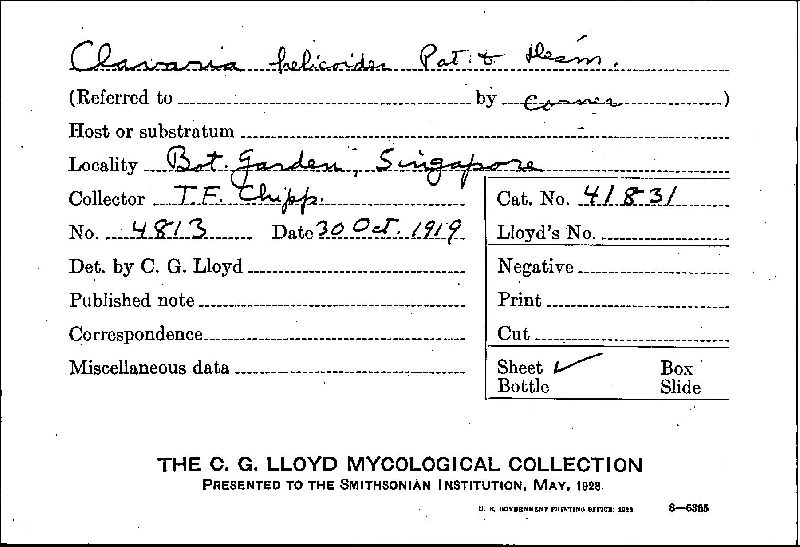 Clavaria helicoides Pat. &
(Referred to by Corner )
Host or substratum
Locality Bot. Garden, Singapore
Collector T.F. Chipp.
Cat. No. 41831
No. 4813 Date 30 Oct. 1919
Lloyd's No.
Det. by C. G. Lloyd
Negative
Published note
Print
Correspondence
Cut
Miscellaneous data
Sheet ✓ Box
Bottle Slide
THE C. G. LLOYD MYCOLOGICAL COLLECTION
PRESENTED TO THE SMITHSONIAN INSTITUTION, MAY, 1928.
U. S. GOVERNMENT PRINTING OFFICE: 1928 8—6365